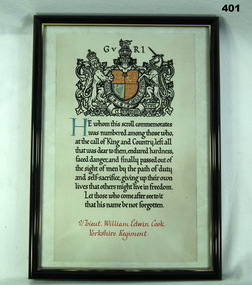 401
G V R I
HE whom this scroll commemorates
was numbered among those who,
at the call of King and Country, left all
that was dear to them, endured hardness,
faced danger, and finally passed out of
the sight of men by the path of duty
and self-sacrifice, giving up their own
lives that others might live in freedom.
Let those who come after see to it
that his name be not forgotten.
2/Lieut. William Edwin Cook
Yorkshire Regiment